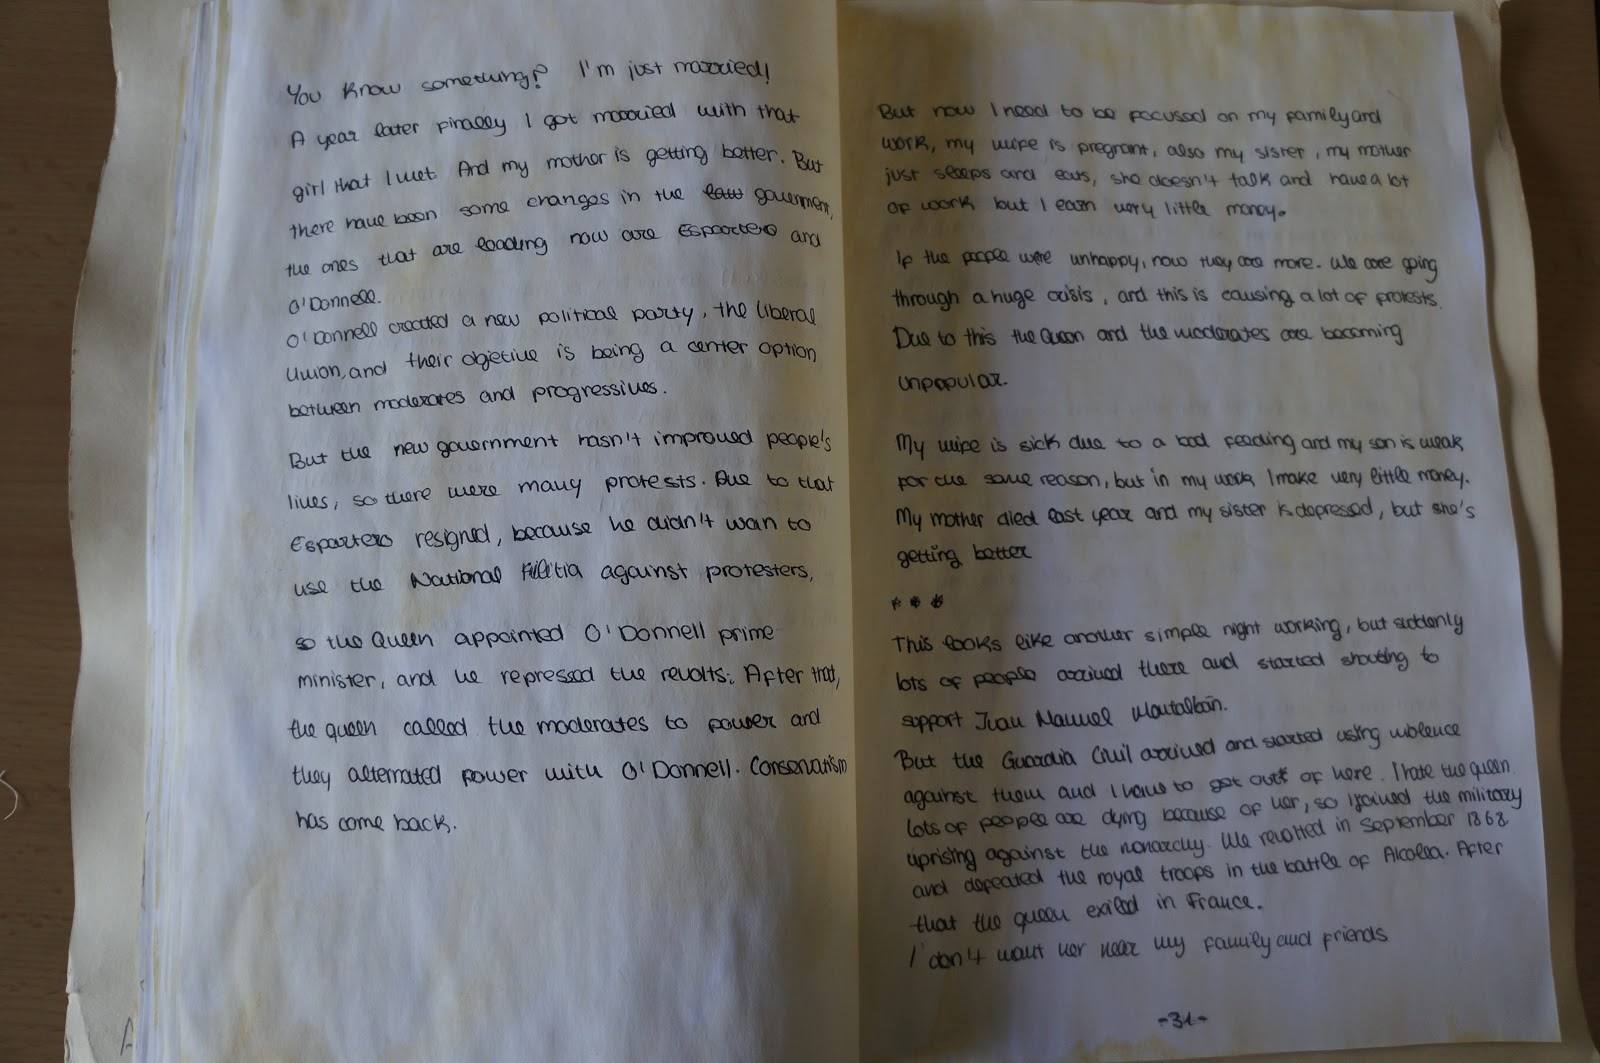 You know something? I'm just married!
A year later finally I got married with that
girl that I met. And my mother is getting better. But
there have been some changes in the law government,
the ones that are leading now are Espartero and
O'Donnell.
O'Donnell created a new political party, the liberal
Union, and their objetive is being a center option
between moderates and progressives.
But the new government hasn't improved people's
lives, so there were many protests. Due to that
Espartero resigned, because he didn't wan to
use the National Militia against protesters,
so the Queen appointed O'Donnell prime
minister, and he repressed the revolts. After that,
the queen called the moderates to power and
they alternated power with O'Donnell. Conservatism
has come back.
But now I need to be focused on my family and
work, my wife is pregnant, also my sister, my mother
just sleeps and eats, she doesn't talk and have a lot
of work but I earn very little money.
If the people were unhappy, now they are more. We are going
through a huge crisis, and this is causing a lot of protests.
Due to this the Queen and the moderates are becoming
unpopular.
My wife is sick due to a bad feeding and my son is weak
for the same reason, but in my work I make very little money.
My mother died last year and my sister is depressed, but she's
getting better
* * *
This looks like another simple night working, but suddenly
lots of people arrived there and started shouting to
support Juan Manuel Montalbán.
But the Guardia Civil arrived and started using violence
against them and I have to get out of here. I hate the queen
lots of people are dying because of her, so I joined the military
uprising against the monarchy. We revolted in September 1868
and defeated the royal troops in the battle of Alcolea. After
that the queen exiled in France.
I don't want her near my family and friends
-31-